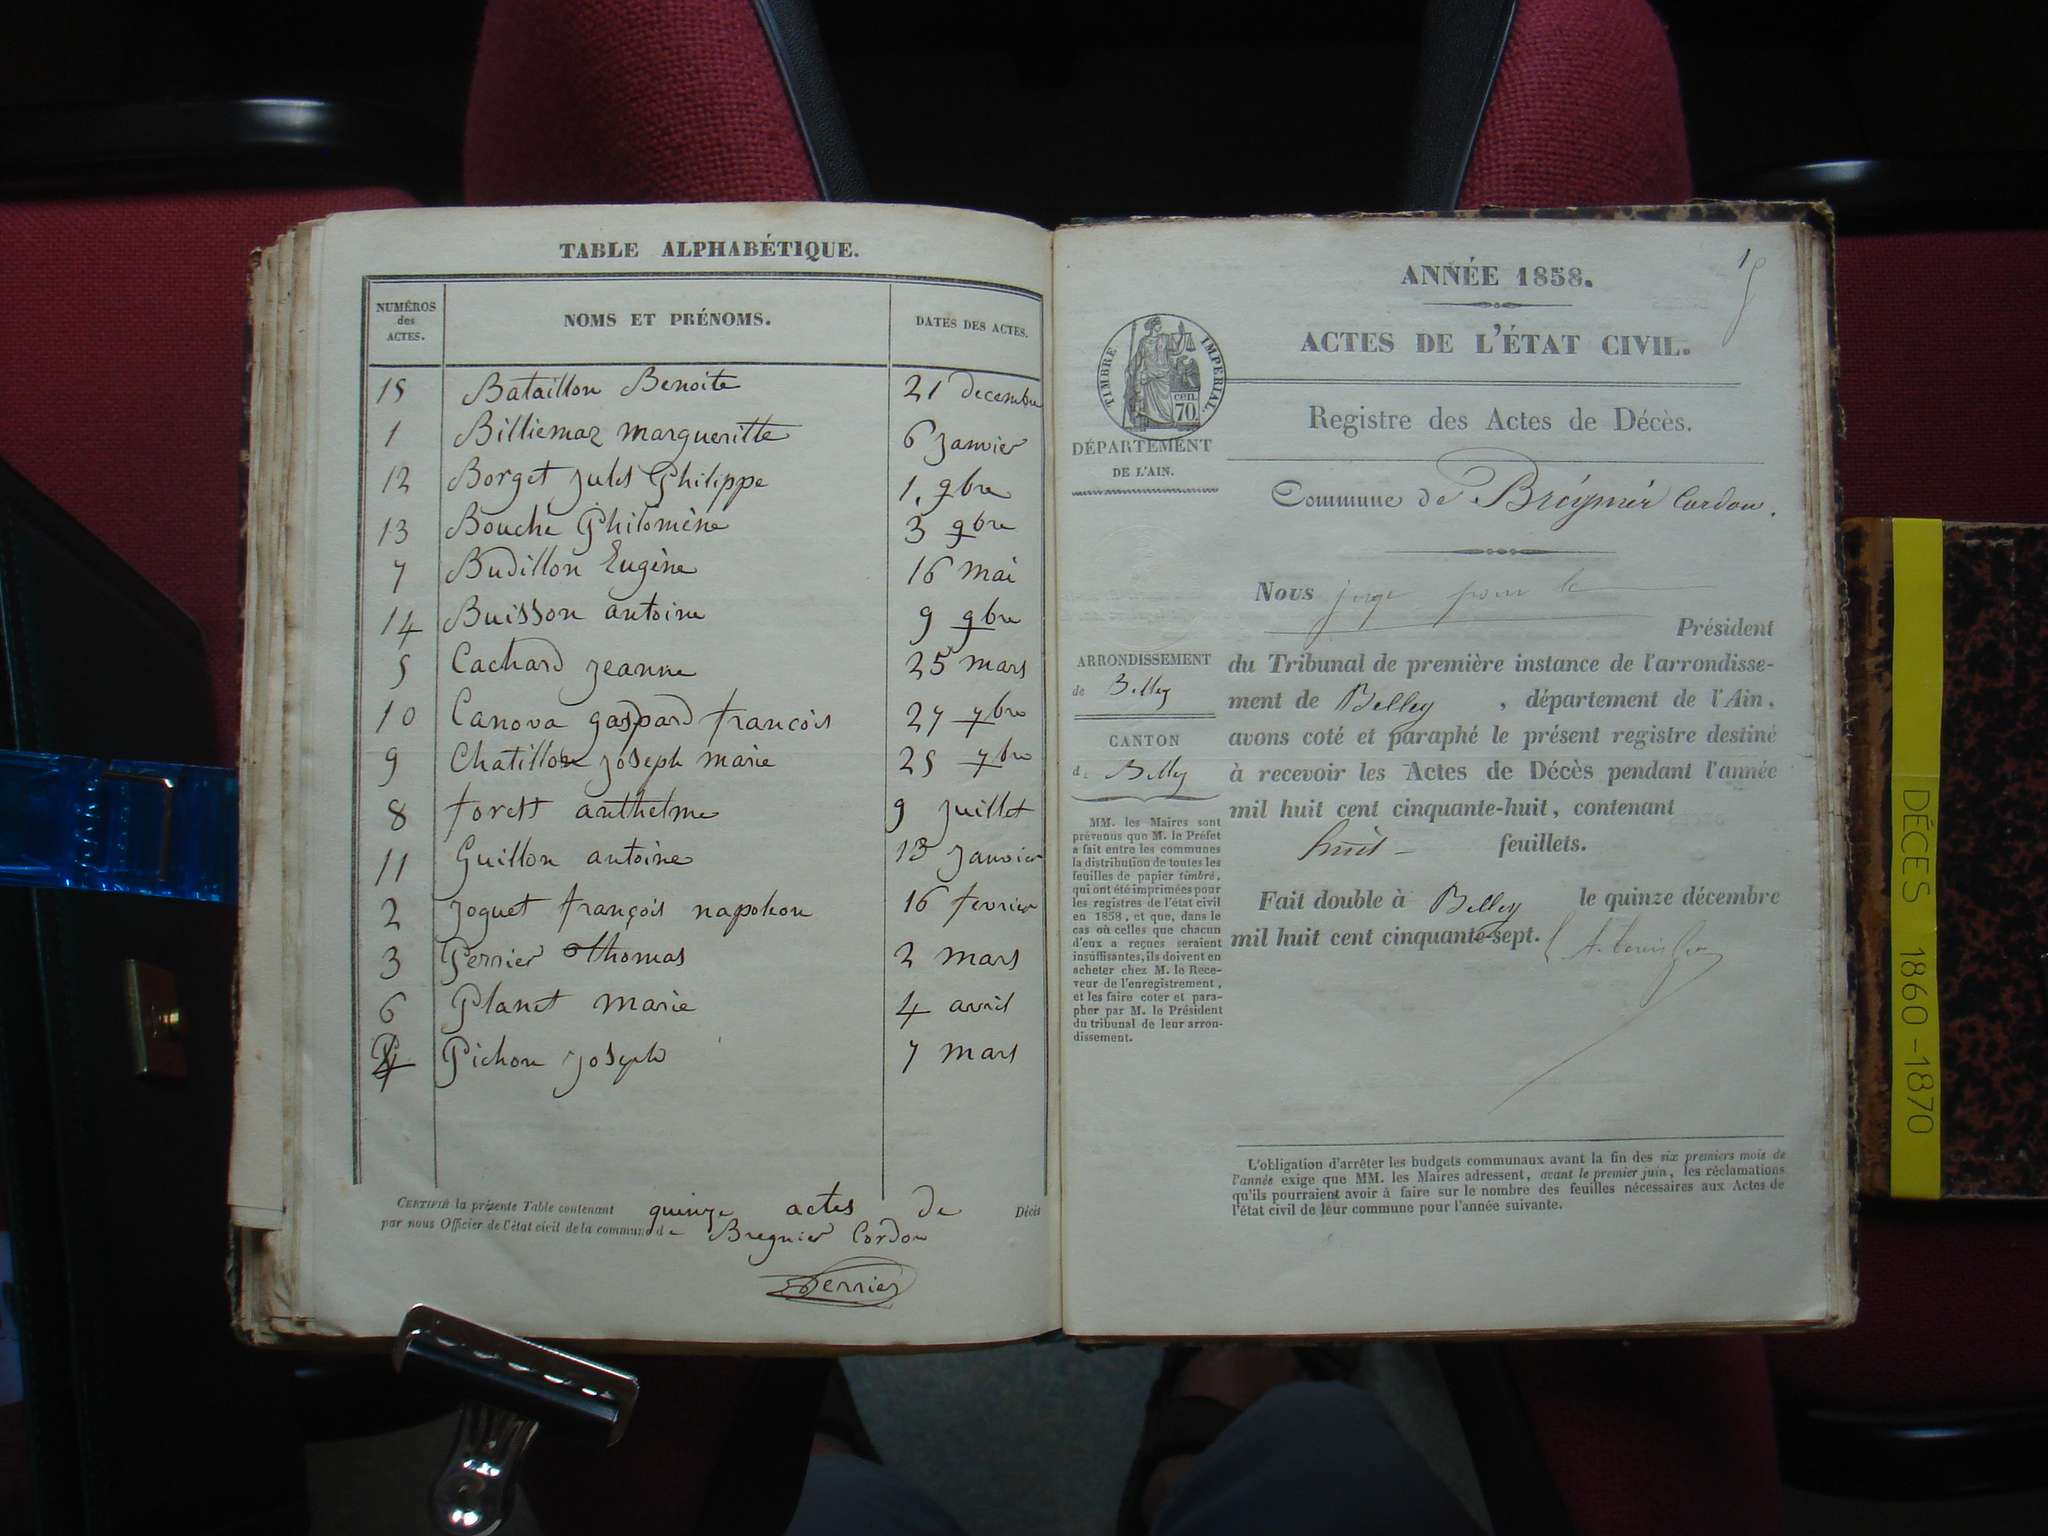 TABLE ALPHABÉTIQUE.
NUMÉROS des ACTES.
NOMS ET PRÉNOMS.
DATES DES ACTES.
15 Bataillon Benoite 21 decembre
1 Billiemaz margueritte 6 janvier
12 Borget jules Philippe 1. 9bre
13 Bouché Philomène 3 9bre
7 Budillon Eugène 16 mai
14 Buisson antoine 9 9bre
5 Cachard jeanne 25 mars
10 Canova gaspard françois 27 7bre
9 Chatillon joseph marie 25 7bre
8 forest anthelme 9 juillet
11 Guillon antoine 13 janvier
2 joguet françois napoleon 16 fevrier
3 Perrier thomas 2 mars
6 Planet marie 4 avril
4 Pichon joseph 7 mars
CERTIFIÉ la présente Table contenant quinze actes de Décès
par nous Officier de l'état civil de la commune de Bregnier Cordon
Perrier
1
ANNÉE 1858.
ACTES DE L'ÉTAT CIVIL.
TIMBRE IMPÉRIAL.
cen.
70
Registre des Actes de Décès.
DÉPARTEMENT
DE L'AIN.
Commune de Brégnier Cordon.
Nous juge pour le
Président
ARRONDISSEMENT
de Belley
CANTON
de Belley
du Tribunal de première instance de l'arrondisse-
ment de Belley, département de l'Ain,
avons coté et paraphé le présent registre destiné
à recevoir les Actes de Décès pendant l'année
mil huit cent cinquante-huit, contenant
huit feuillets.
Fait double à Belley le quinze décembre
mil huit cent cinquante-sept.
MM. les Maires sont
prévenus que M. le Préfet
a fait entre les communes
la distribution de toutes les
feuilles de papier timbré,
qui ont été imprimées pour
les registres de l'état civil
en 1858, et que, dans le
cas où celles que chacun
d'eux a reçues seraient
insuffisantes, ils doivent en
acheter chez M. le Rece-
veur de l'enregistrement,
et les faire coter et para-
pher par M. le Président
du tribunal de leur arron-
dissement.
L'obligation d'arrêter les budgets communaux avant la fin des six premiers mois de
l'année exige que MM. les Maires adressent, avant le premier juin, les réclamations
qu'ils pourraient avoir à faire sur le nombre des feuilles nécessaires aux Actes de
l'état civil de leur commune pour l'année suivante.
DÉCES 1860-1870